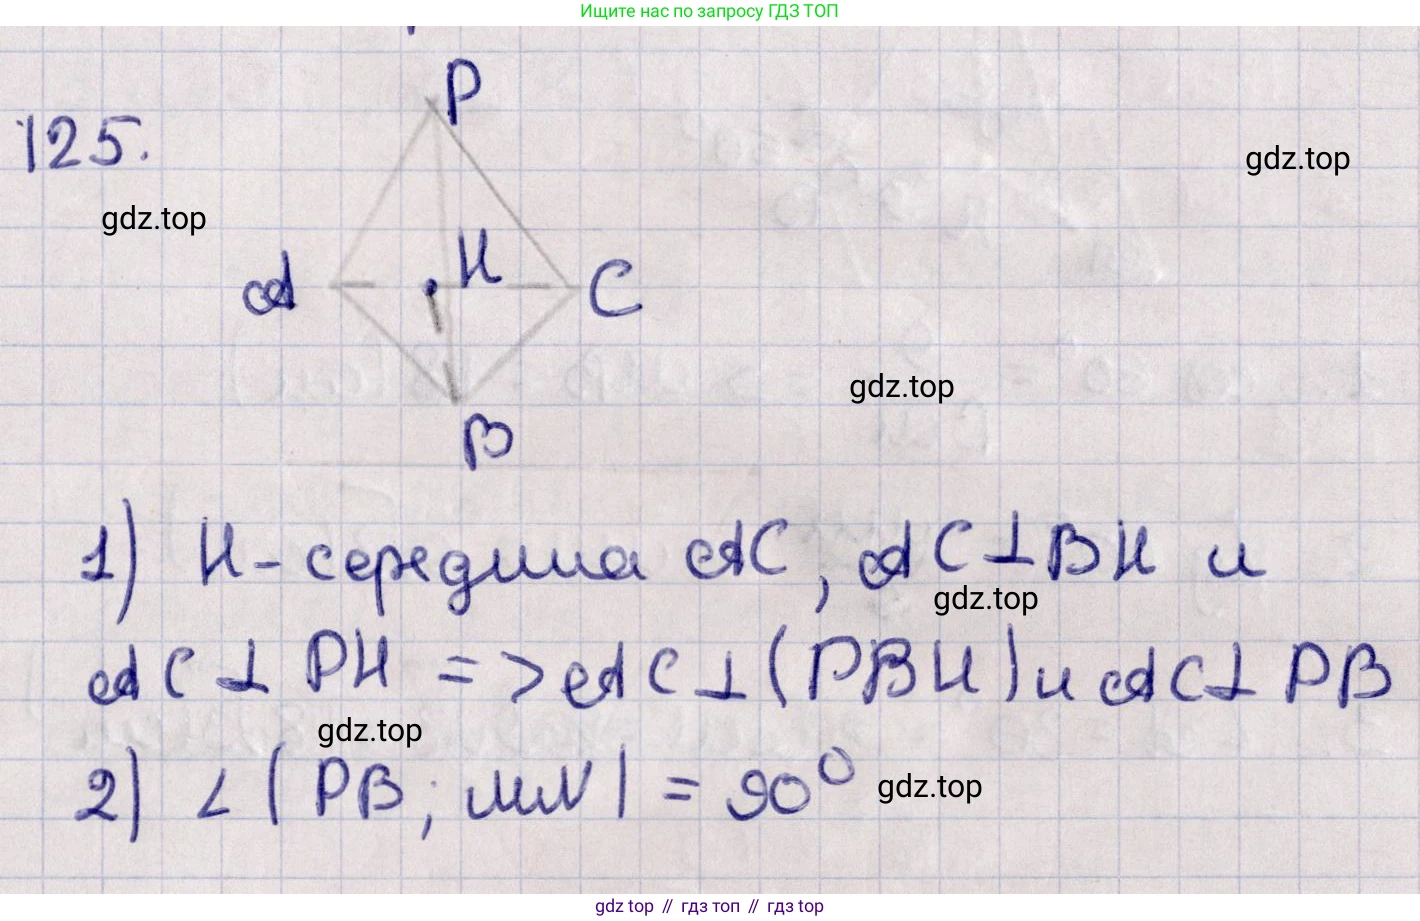 Ищите нас по запросу ГДЗ ТОП
P
125.
gdz.top
gdz.top
H
A
C
gdz.top
B
1) H - середина AC, AC ⊥ BH и
gdz.top
AC ⊥ PH => AC ⊥ (PBH) и AC ⊥ PB
gdz.top
2) ∠ (PB; MN) = 90°
gdz.top
gdz top // гдз топ // гдз top